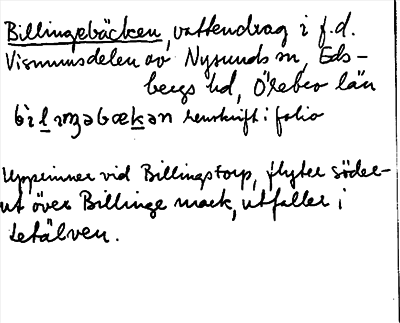 Billingebäcken, vattendrag i f.d.
Visnumsdelen av Nysunds sn, Eds-
bergs hd, Örebro län
bìlıŋəbœkən renskrift i folio
Upprinner vid Billingstorp, flyter söder-
ut över Billinge mark, utfaller i
Letälven.